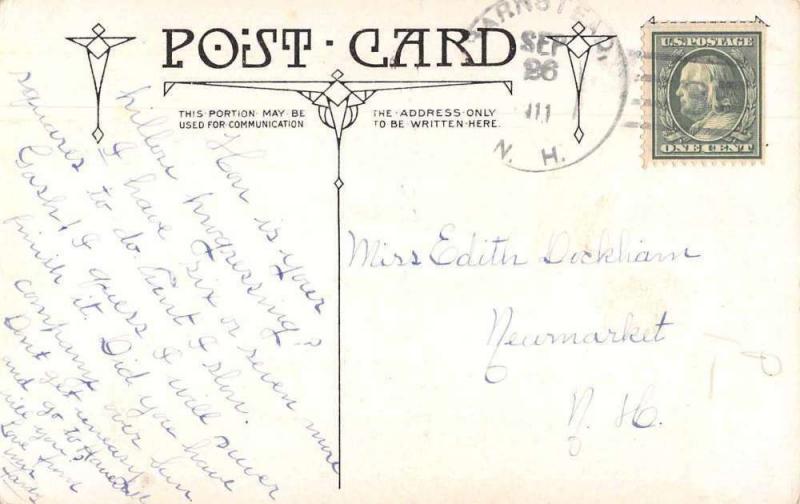 POST-CARD
THIS PORTION MAY BE
USED FOR COMMUNICATION
THE ADDRESS ONLY
TO BE WRITTEN HERE.
BARNSTEAD,
SEP
26
N. H.
U.S. POSTAGE
ONE CENT
How is your
pillow progressing?
I have six or seven more
squares to do. Aint I slow.
Gosh! I guess I will never
finish it. Did you have
company over Sun
Dont get uneasy
and go to
will you?
Love from
Miss Edith Dockham
Newmarket
N. H.